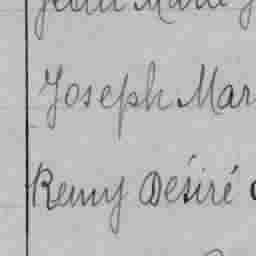 Jean Marie J
Joseph Mar
Remy Désiré